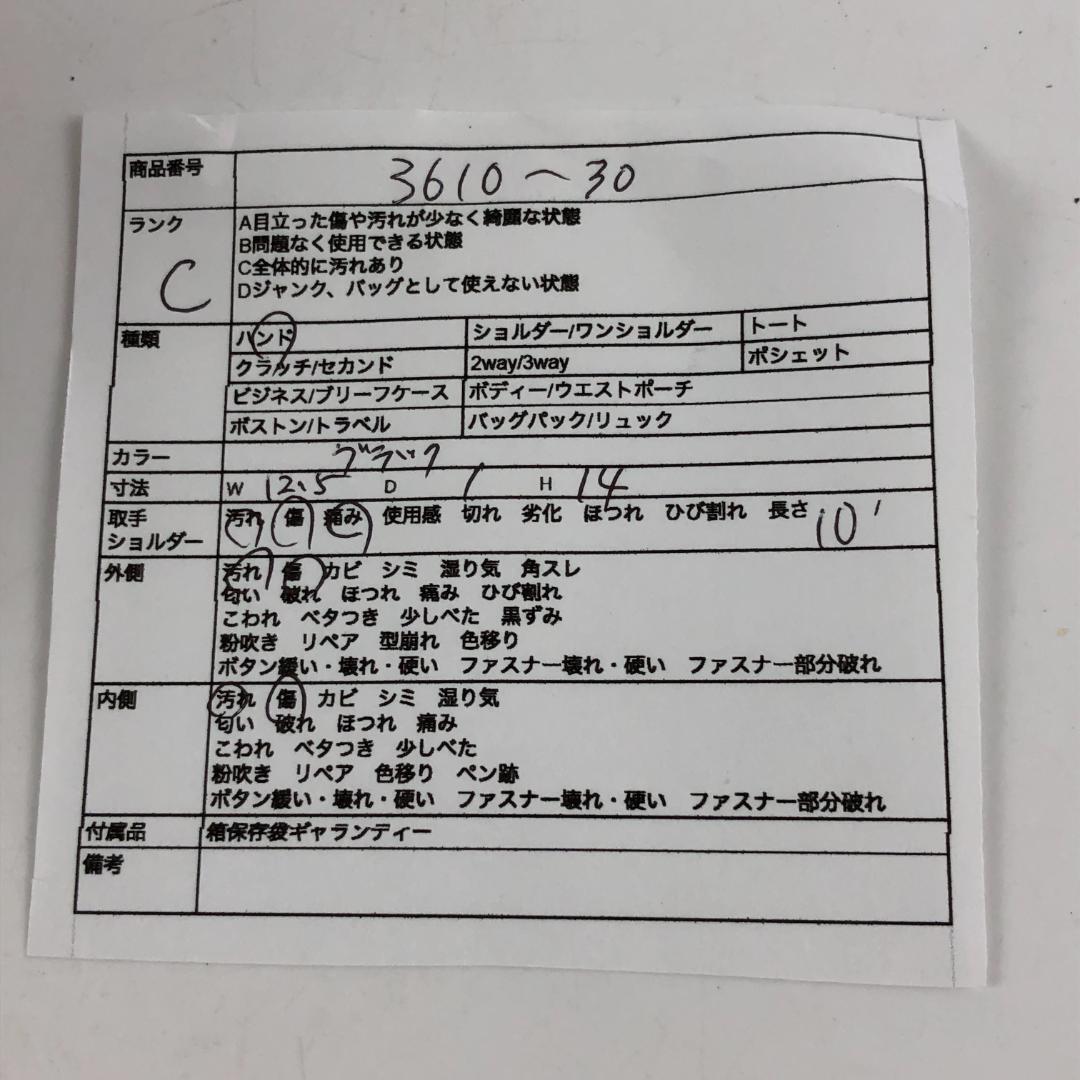 商品番号 3610～30
ランク C
A目立った傷や汚れが少なく綺麗な状態
B問題なく使用できる状態
C全体的に汚れあり
Dジャンク、バッグとして使えない状態
種類 ハンド ショルダー/ワンショルダー トート
クラッチ/セカンド 2way/3way ポシェット
ビジネス/ブリーフケース ボディー/ウエストポーチ
ボストン/トラベル バッグパック/リュック
カラー ブラック
寸法 W 12.5 D 1 H 14
取手 汚れ 傷 痛み 使用感 切れ 劣化 ほつれ ひび割れ 長さ 10
ショルダー
外側 汚れ 傷 カビ シミ 湿り気 角スレ
匂い 破れ ほつれ 痛み ひび割れ
こわれ ベタつき 少しべた 黒ずみ
粉吹き リペア 型崩れ 色移り
ボタン緩い・壊れ・硬い ファスナー壊れ・硬い ファスナー部分破れ
内側 汚れ 傷 カビ シミ 湿り気
匂い 破れ ほつれ 痛み
こわれ ベタつき 少しべた
粉吹き リペア 色移り ペン跡
ボタン緩い・壊れ・硬い ファスナー壊れ・硬い ファスナー部分破れ
付属品 箱保存袋ギャランディー
備考